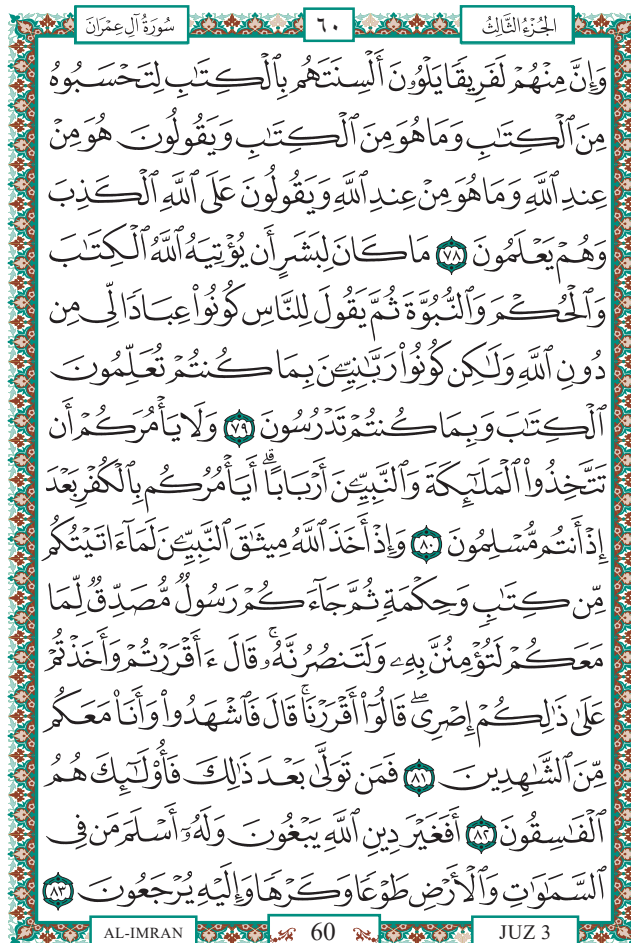 سُورَةُ آلِ عِمْرَانَ ٦٠ الجُزْءُ الثَّالِثُ
وَإِنَّ مِنْهُمْ لَفَرِيقًا يَلْوُۥنَ أَلْسِنَتَهُم بِٱلْكِتَٰبِ لِتَحْسَبُوهُ
مِنَ ٱلْكِتَٰبِ وَمَا هُوَ مِنَ ٱلْكِتَٰبِ وَيَقُولُونَ هُوَ مِنْ
عِندِ ٱللَّهِ وَمَا هُوَ مِنْ عِندِ ٱللَّهِ وَيَقُولُونَ عَلَى ٱللَّهِ ٱلْكَذِبَ
وَهُمْ يَعْلَمُونَ ٧٨ مَا كَانَ لِبَشَرٍ أَن يُؤْتِيَهُ ٱللَّهُ ٱلْكِتَٰبَ
وَٱلْحُكْمَ وَٱلنُّبُوَّةَ ثُمَّ يَقُولَ لِلنَّاسِ كُونُوا۟ عِبَادًا لِّى مِن
دُونِ ٱللَّهِ وَلَٰكِن كُونُوا۟ رَبَّٰنِيِّۦنَ بِمَا كُنتُمْ تُعَلِّمُونَ
ٱلْكِتَٰبَ وَبِمَا كُنتُمْ تَدْرُسُونَ ٧٩ وَلَا يَأْمُرَكُمْ أَن
تَتَّخِذُوا۟ ٱلْمَلَٰٓئِكَةَ وَٱلنَّبِيِّۦنَ أَرْبَابًا ۗ أَيَأْمُرُكُم بِٱلْكُفْرِ بَعْدَ
إِذْ أَنتُم مُّسْلِمُونَ ٨٠ وَإِذْ أَخَذَ ٱللَّهُ مِيثَٰقَ ٱلنَّبِيِّۦنَ لَمَآ ءَاتَيْتُكُم
مِّن كِتَٰبٍ وَحِكْمَةٍ ثُمَّ جَآءَكُمْ رَسُولٌ مُّصَدِّقٌ لِّمَا
مَعَكُمْ لَتُؤْمِنُنَّ بِهِۦ وَلَتَنصُرُنَّهُۥ ۚ قَالَ ءَأَقْرَرْتُمْ وَأَخَذْتُمْ
عَلَىٰ ذَٰلِكُمْ إِصْرِى ۖ قَالُوٓا۟ أَقْرَرْنَا ۚ قَالَ فَٱشْهَدُوا۟ وَأَنَا۠ مَعَكُم
مِّنَ ٱلشَّٰهِدِينَ ٨١ فَمَن تَوَلَّىٰ بَعْدَ ذَٰلِكَ فَأُو۟لَٰٓئِكَ هُمُ
ٱلْفَٰسِقُونَ ٨٢ أَفَغَيْرَ دِينِ ٱللَّهِ يَبْغُونَ وَلَهُۥٓ أَسْلَمَ مَن فِى
ٱلسَّمَٰوَٰتِ وَٱلْأَرْضِ طَوْعًا وَكَرْهًا وَإِلَيْهِ يُرْجَعُونَ ٨٣
AL-IMRAN 60 JUZ 3